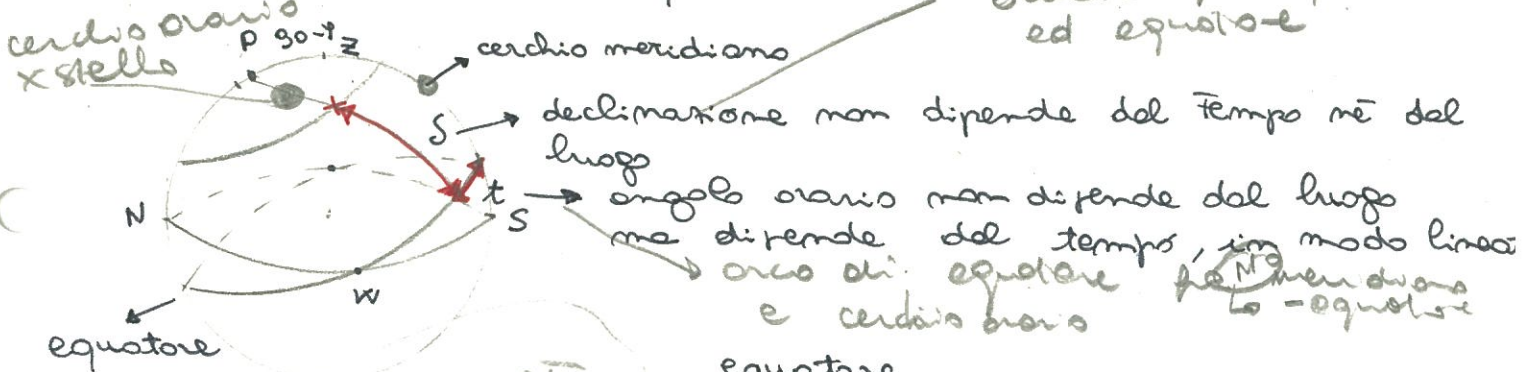 cerchio orario
x stella
P 90-φ Z
cerchio meridiano
ed equatore
δ → declinazione non dipende dal tempo nè dal
luogo
t → angolo orario non dipende dal luogo
ma dipende dal tempo, in modo linea
arco di equatore meridiano
e cerchio orario - equatore
N
S
W
equatore
equatore